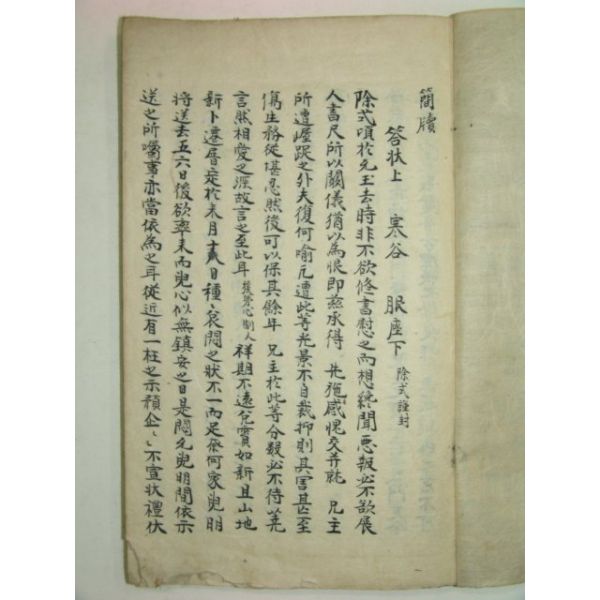 簡牘
答狀上 寒谷 服座下 除式謹封
除式頃於允玉去時非不欲修書慰之而想終聞惡報必不欲展
人書尺所以闕儀猶以為恨即玆承得 先施感愧交幷就 兄主
所遭崛蹊之外夫復何喻凡遭此等光景不自裁抑則其害甚至
傷生務從堪忍然後可以保其餘年 兄主於此等分數必不待
言然相愛之深故言之至此耳 祥期不遠 如新且山地
新卜遷厝定於來月十 日種〻哀悶之狀不一而足奈何家兒明
將送去五六日後欲率來而兒心似無鎭安之日是悶允兒明間依示
送之所囑事亦當依為之耳從近有一枉之示預企〻不宣狀禮伏